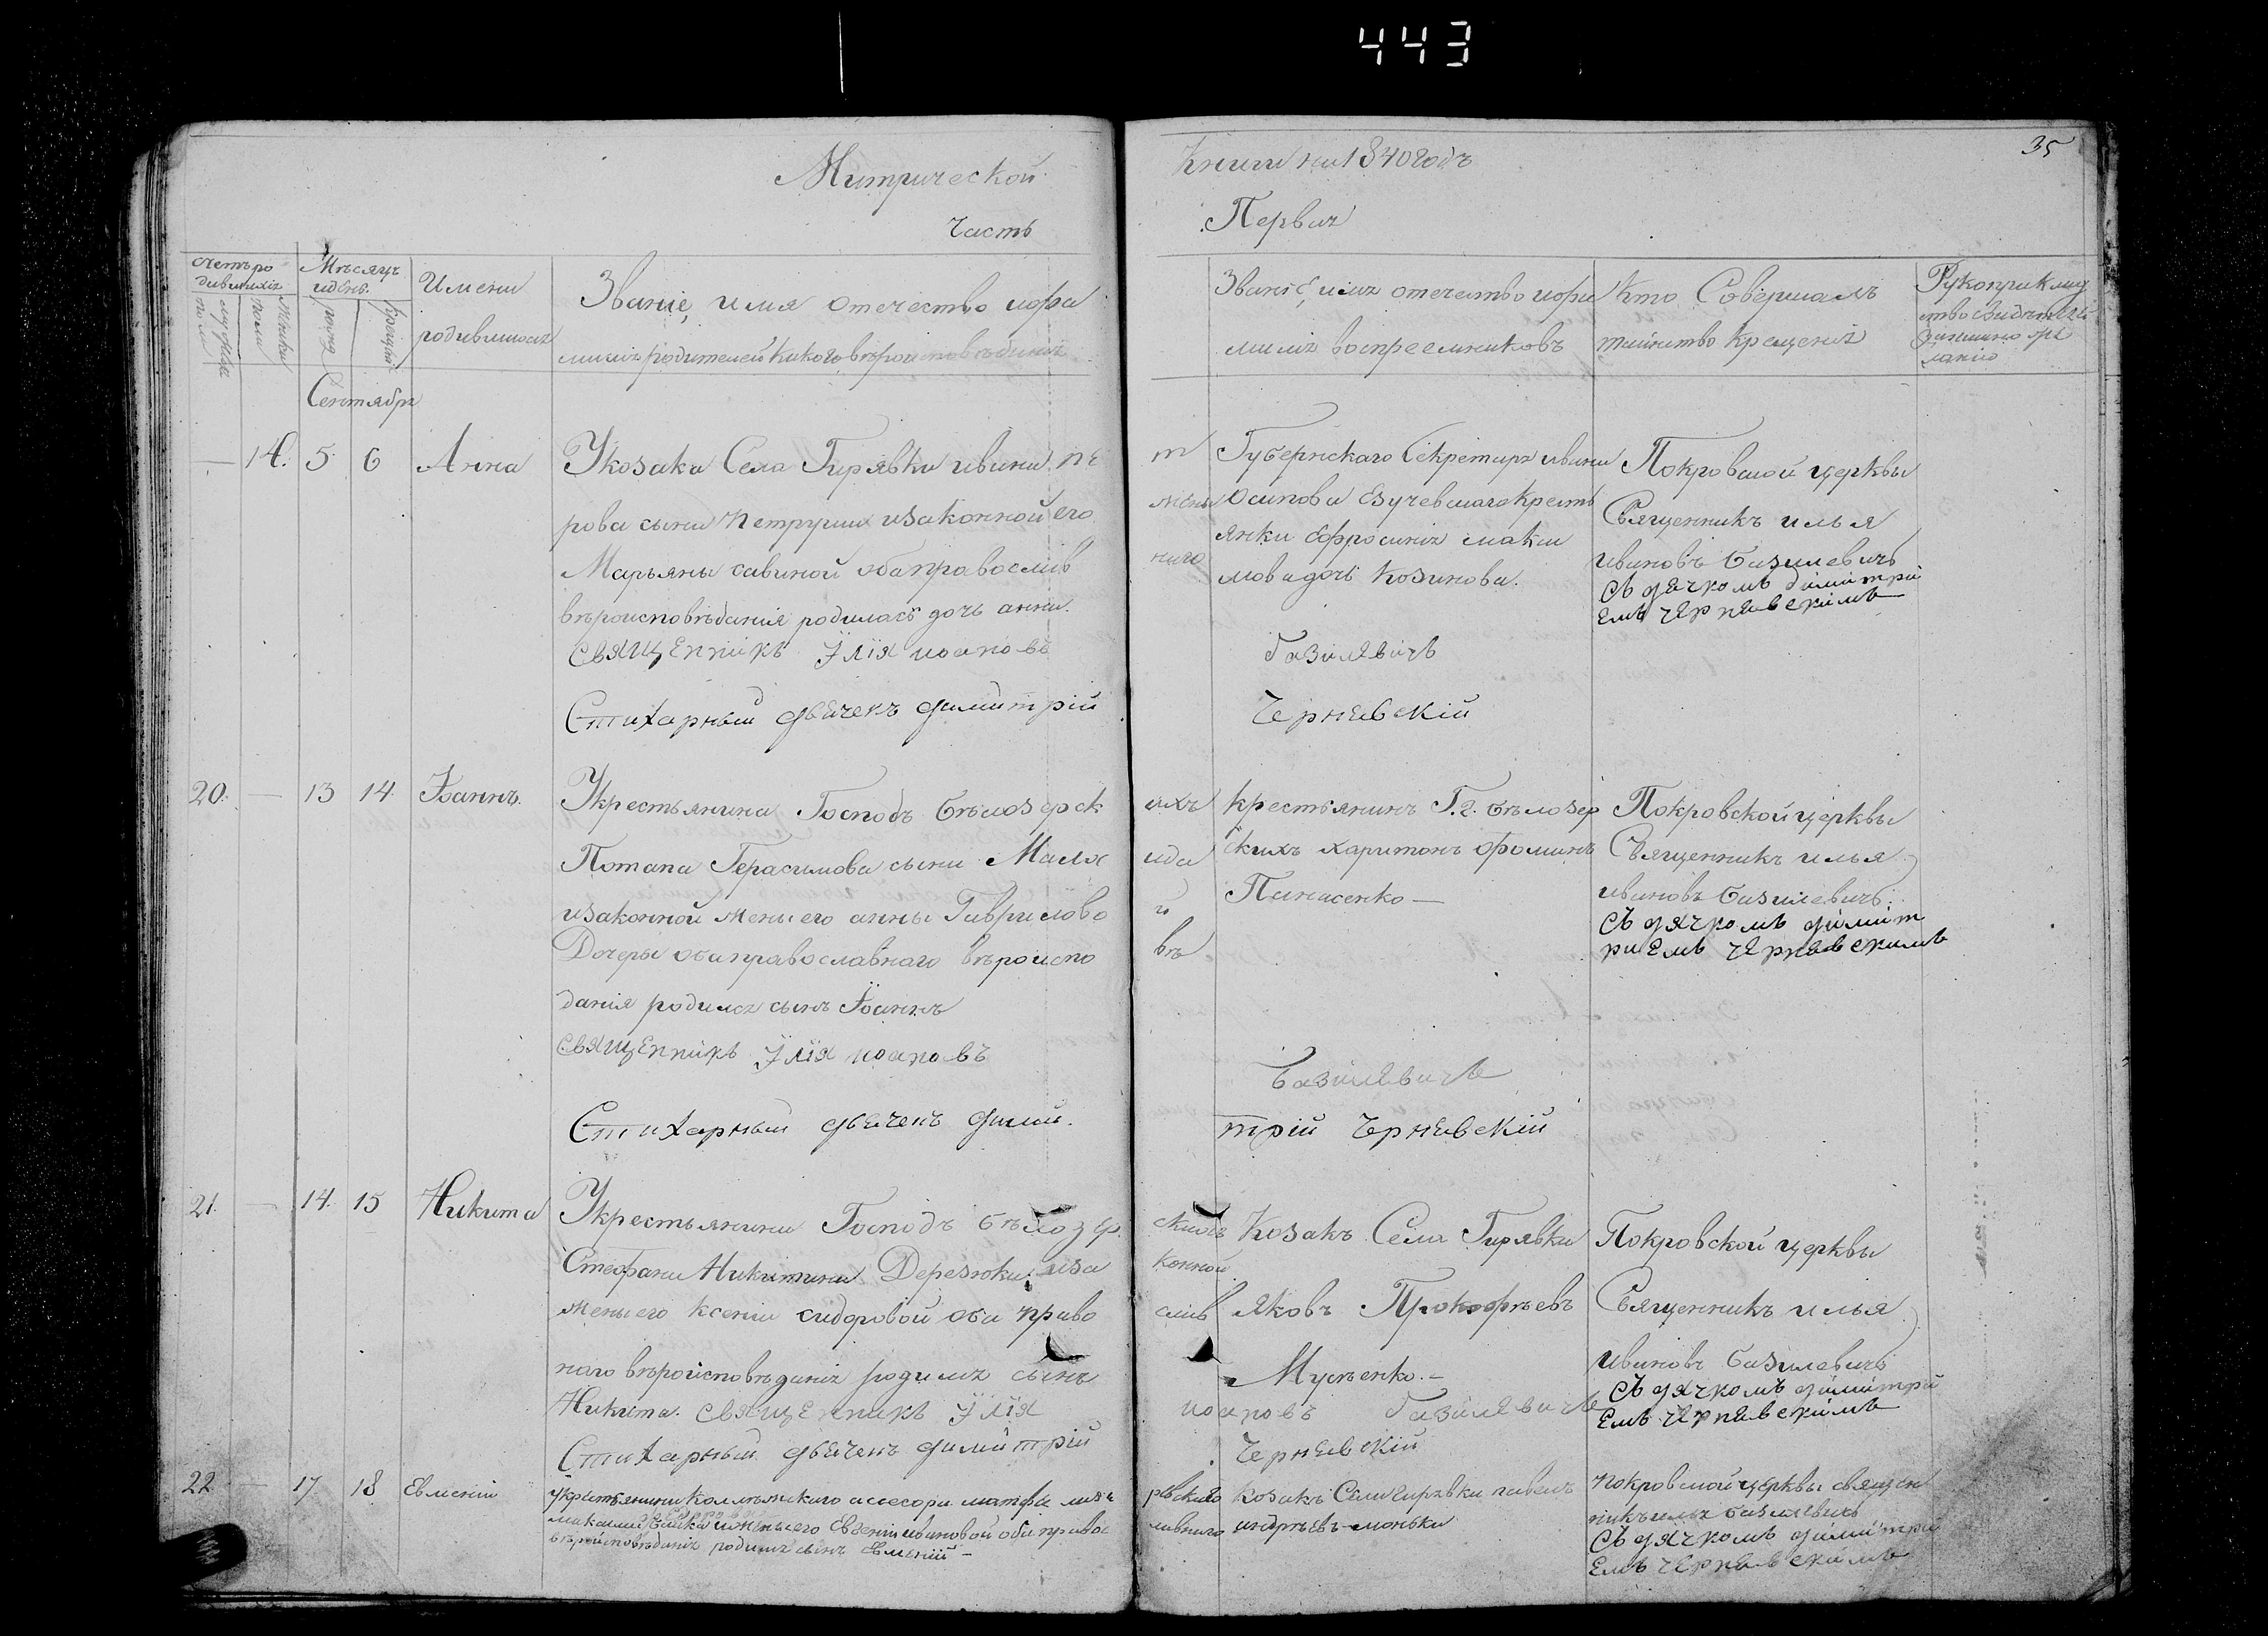 443
35
Метрической Книги на 1840 Годъ
Часть Первая
Счетъ родившихся
мужеска полу
женска полу
Мѣсяцъ и день.
рожд
крещен
Имена родившихся
Званіе, имя отечество и фамилія родителей и какого вѣроисповѣданія
Званіе, имя отечество и фамилія воспреемниковъ
Кто Совершалъ таинство крещенія
Рукоприкладство Свидѣтелей записи по желанію
Сентябрь
— 14. 5. 6 Анна
У козака Села Гирявки ивана пет
рова сына Петруши и законной его жены
Марьяны савиной оба православ наго
вѣроисповѣданія родилась дочь анна.
Священникъ Илія иоановъ Базилевичъ
Стихарный дьячекъ димитрій Черневскій
Губернскаго Секретаря ивана
осипова крестъ
янки Ефросинія макси
мова дочь Козинова.
Покровской церквы
Священникъ илья
ивановъ базилевичъ
съ дячкомъ димитри
емъ черневскимъ
20. — 13 14. Іоаннъ.
У крестьянина Господъ Бѣлозерск ихъ
Потапа Герасимова сына
и законной жены его анны Гаврилово й
Дочеры оба православнаго вѣроиспо вѣ
данія родился сынъ Іоаннъ
Священникъ Илія иоановъ Базилевичъ
Стихарный дьячекъ дими трій Черневскій
крестьянинъ Г.г. бѣлозер
скихъ харитонъ фоминъ
Панасенко —
Покровской церквы
Священникъ илья
ивановъ базилевичъ
съ дячкомъ димит
риемъ черневскимъ
21. — 14. 15 Никита
У крестьянина Господъ бѣлозер скихъ
Стефана Никитина Дерезюка иза конной
жены его ксении сидоровой оба право слав
наго вѣроисповѣданія родился сынъ
Никита. Священникъ Илія иоановъ Базилевичъ
Стихарный дьячекъ димитрій Черневскій
Козакъ Села Гирявки
яковъ Прокофѣевъ
Мусѣенко. —
Покровской церквы
Священникъ илья
ивановъ базилевичъ
съ дячкомъ димитри
емъ черневскимъ
22 — 17 18 Евмений
У крестьянина коллежскаго асесора
и жены его Евгении ивановой оба правос лавнаго
вѣроисповѣданія родился сынъ Евмений —
козакъ Села гирявки павелъ
андрѣевъ
покровской церквы священ
никъ илья базилевичъ
съ дячкомъ димитри
емъ черневскимъ